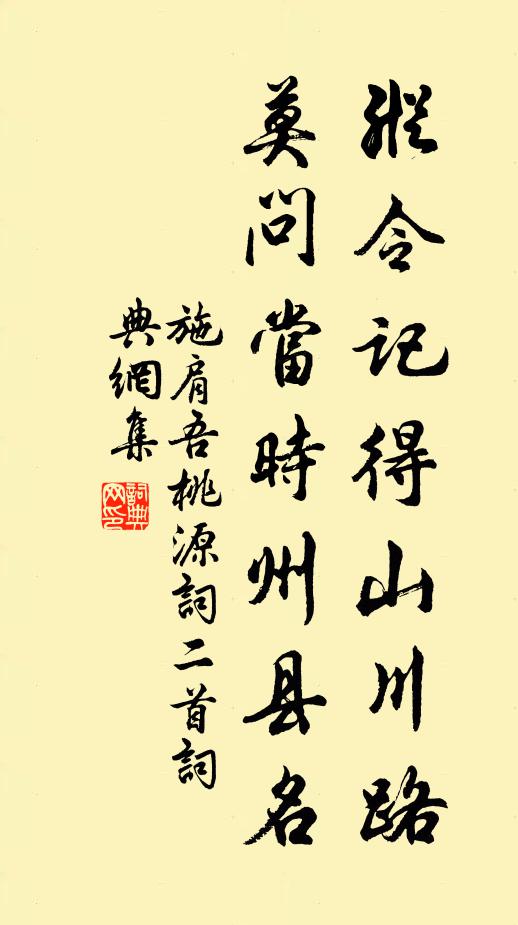 縱令記得山川路
莫問當時州县名
施肩吾桃源詞二首詞
典網集
詞典
网印